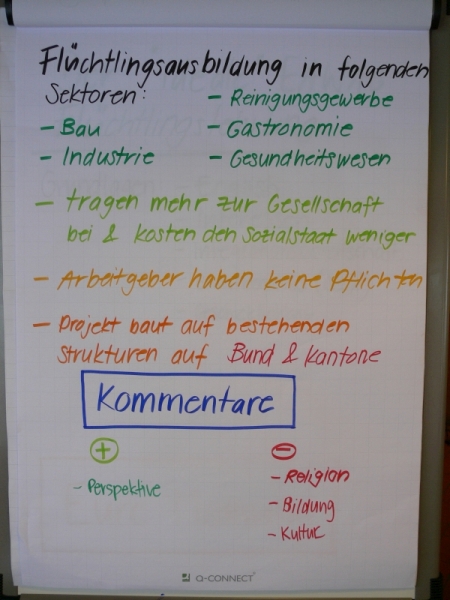 Flüchtlingsausbildung in folgenden
Sektoren:
- Reinigungsgewerbe
- Bau
- Gastronomie
- Industrie
- Gesundheitswesen
- tragen mehr zur Gesellschaft
bei & kosten den Sozialstaat weniger
- Arbeitgeber haben keine Pflichten
- Projekt baut auf bestehenden
Strukturen auf Bund & Kantone
Kommentare
+
-
- Perspektive
- Religion
- Bildung
- Kultur
Q-CONNECT